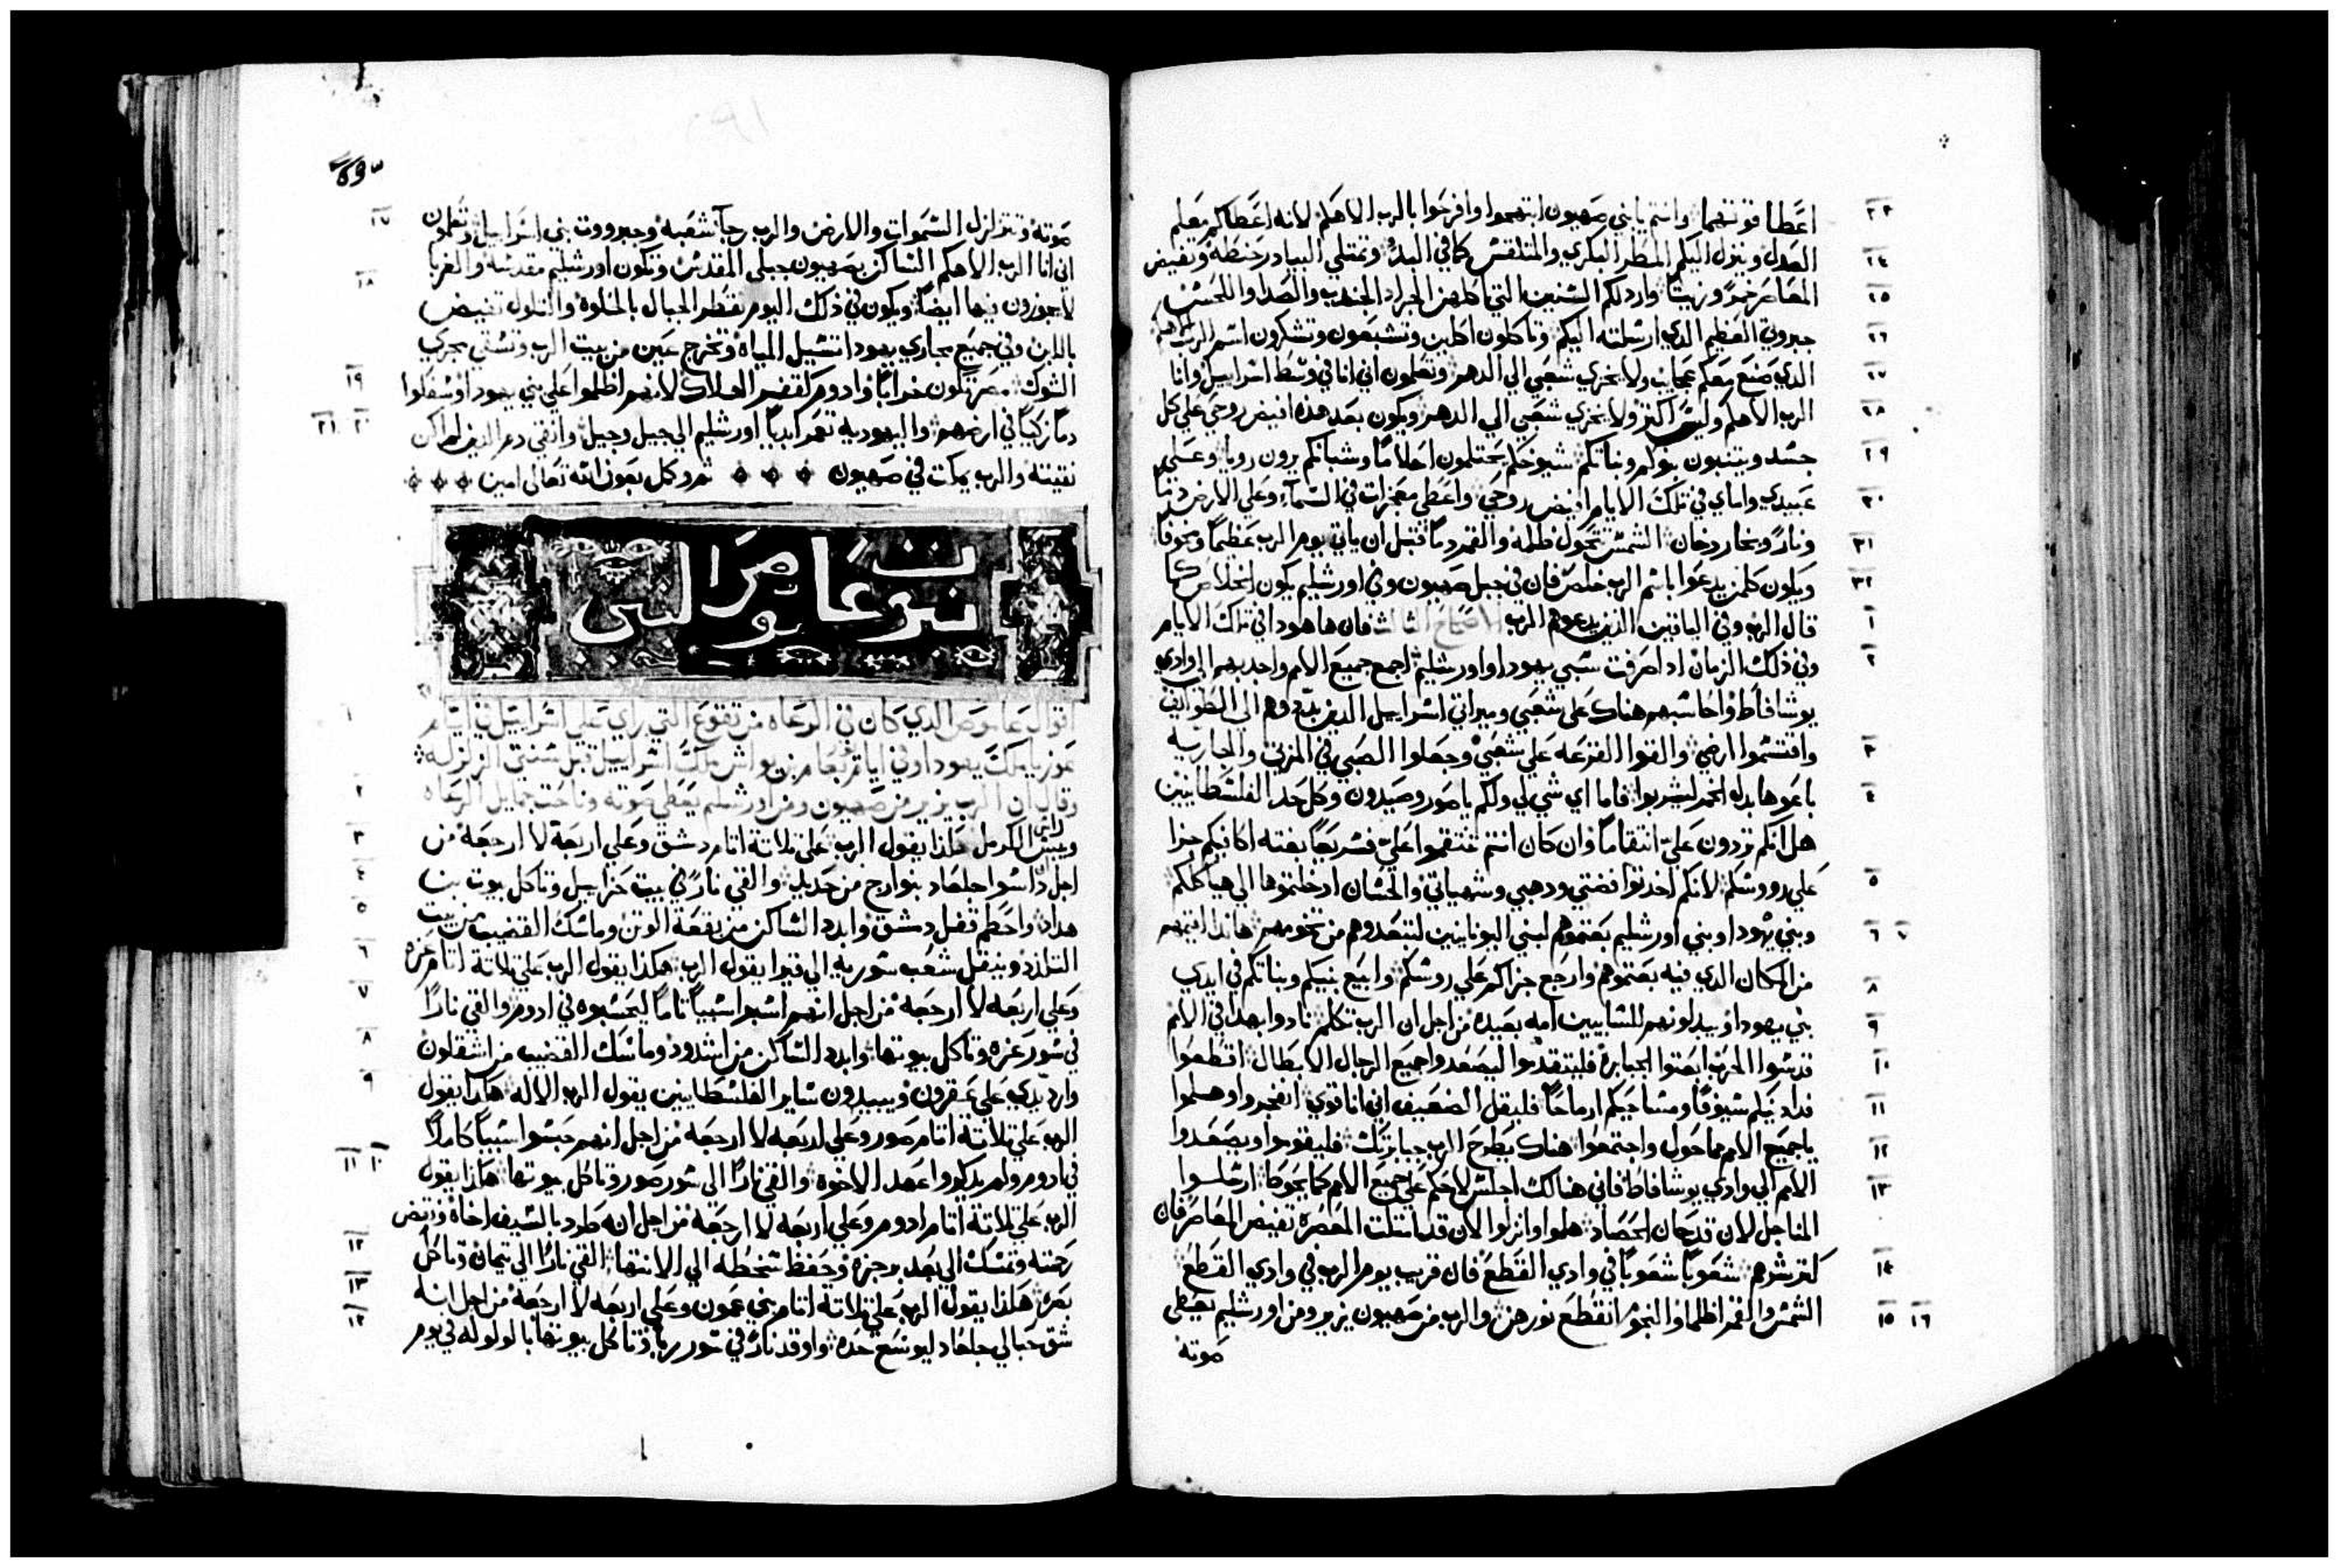 اعطا قوتهما وانتم يابني صهيون ابتهجوا وافرحوا بالرب الاهكم لانه اعطاكم معلم
العدل وينزل اليكم المطر البكري والمتلقس كما في البدء وتمتلي البيادر حنطه وتفيض
المعاصر خمرً وزيتاً واردلكم السنين التي اكلهن الجراد الجندب والصدا واللحسس
جبروتي العظيم الدي ارسلته اليكم وتاكلون اكلين وتشبعون وتشكرون اسم الرب الاهكم
الدي صنع معكم عجايب ولا يخزي شعبي الي الدهر وتعلمون اني انا في وسط اسراييل وانا
الرب الاهكم وليس اكثر ولا يخزي شعبي الي الدهر ويكون بعد هذه افيض روحي علي كل
جسد ويتنبون بنوكم وبناتكم شيوخكم يحتلمون احلاماً وشبانكم يرون رويا وعلي
عبيدي واماي في تلك الايام افيض روحي واعطي معجزات في السماء وعلي الارض دماً
وناراً وبخار دخان الشمس تتحول ظلمه والقمر دماً قبل ان ياتي يوم الرب عظيماً ومخوفاً
ويكون كلمن يدعوا باسم الرب خلص فان في جبل صهيون وفي اورشليم يكون الخلاص كما
قال الرب وفي الباقين الذين يدعوهم الرب الاصحاح الثالث فان هاهودا في تلك الايام
وفي ذلك الزمان ادا صرفت سبي يهودا واورشليم اجمع جميع الامم واحدبهم الي وادي
يوشافاط واحاسبهم هناك علي شعبي وميراتي اسراييل الدين بددوهم الي الطوايف
واقتسموا ارضي والقوا القرعه علي شعبي وجعلوا الصبي في المزني والجاريه
باعوها بدل الخمر ليشربوا فاما اي شي لي ولكم ياصور وصيدون وكل حد الفلسطانيين
هل انكم تردون علي انتقاماً وان كان انتم تنتقموا علي فسريعاً بغته اكافيكم جزا
علي رووسكم لانكم اخدتوا فضتي ودهبي وشهياتي والحسان ادخلتموها الي هياكلكم
وبني يهودا وبني اورشليم بعتموهم لبني اليونانيين لتبعدوهم من تخومهم هاندا اقيمهم
من المكان الدي فيه بعتموهم وارجع جزاكم علي روسكم وابيع بنيكم وبناتكم في ايدي
بني يهودا ويبدلونهم للشابيين امه بعيده من اجل ان الرب تكلم نادوا بهدا في الامم
قدسوا الحرب ابعتوا الجبابرة فليتقدموا ليصعدوا جميع الرجال الابطال اقطعوا
فدادينكم سيوفاً ومساحيكم ارماحاً فليقل الضعيف اني انا قوي انفجروا وهلموا
ياجميع الامم مما حول واجتمعوا هناك يطرح الرب جبابرتك فليقوموا ويصعدوا
الامم الي وادي يوشافاط فاني هنالك اجلس لاحكم علي جميع الامم كما يحوط ارسلوا
المناجل لان قد حان الحصاد هلموا وانزلوا الان قد امتلت المعصره تفيض المعاصر فان
كترشرهم شعوباً شعوباً في وادي القطع فان قريب يوم الرب في وادي القطع
الشمس والقمر اظلما والنجوم انقطع نورهن والرب من صهيون يزير ومن اورشليم يعطي
صوته
صوته وتتزلزل السموات والارض والرب رجآ شعبه وجبرووت بني اسراييل وتعلمون
اني انا الرب الاهكم الساكن بصهيون جبلي المقدس وتكون اورشليم مقدسه والغربا
لا يجوزون فيها ايضاً ويكون في ذلك اليوم تقطر الجبال بالحلاوة والتلول تفيض
باللبن وفي جميع مجاري يهودا تسيل المياه وتخرج عين من بيت الرب وتسقي مجري
الشوك مصر تكون خراباً وادوم كقفر الهلاك لانهم اظلموا علي بني يهودا وسفكوا
دماً زكياً في ارضهم واليهوديه تعمر ابدياً اورشليم الي جيل وجيل وانقي دم الدين لم اكن
نقيته والرب يمكت في صهيون تم وكمل بعون الله تعالى امين
نبوة عاموص النبي
اقوال عاموص الدي كان في الرعاه من تقوع التي راي علي اسراييل في ايام
عوزيا ملك يهودا وفي ايام يربعام بن يواش ملك اسراييل قبل سنتي الزلزله
وقال ان الرب يزير من صهيون ومن اورشليم يعطي صوته وناحت جمايل الرعاه
ويبس راس الكرمل هكذا يقول الرب علي تلاتة اتام دمشق وعلي اربعة لا ارجعه من
اجل داسوا جلعاد بنوارج من حديد والقي ناراً في بيت حزاييل وتاكل بيوت بن
هداد واحطم قفل دمشق وابدد الساكن من بقعة الوتن وماسك القضيب من بيت
التلذذ وينقل شعب سوريه الي قيرا يقول الرب هكذا يقول الرب علي تلاتة اتام غزه
وعلي اربعه لا ارجعه من اجل انهم اسبوا سبياً تاماً ليحبسوه في ادوم والقي ناراً
في سور غزه وتاكل بيوتها وابدد الساكن من اشدود وماسك القضيب من اشقلون
وارد يدي علي عقرون ويبيدون ساير الفلسطانيين يقول الرب الاله هكذا يقول
الرب علي تلاتة اتام صور وعلي اربعه لا ارجعه من اجل انهم حبسوا سبياً كاملاً
في ادوم ولم يدكروا عهد الاخوه والقي ناراً الي سور صور وتاكل بيوتها هكذا يقول
الرب علي تلاتة اتام ادوم وعلي اربعه لا ارجعه من اجل انه طرد بالسيف اخاه ورفض
رحمته وتمسك الي بعد برجزه وحفظ سخطه الي الانتها القي ناراً الي تيمان وتاكل
بصره هكذا يقول الرب علي تلاتة اتام بني عمون وعلي اربعه لا ارجعه من اجل انه
شق حبالي جلعاد ليوسع حده واوقد ناراً في سور ربا وتاكل بيوتها بالولوله في يوم